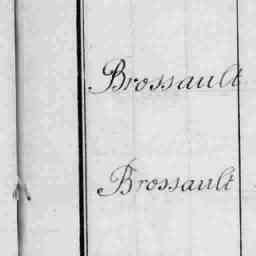 Brossault
Brossault